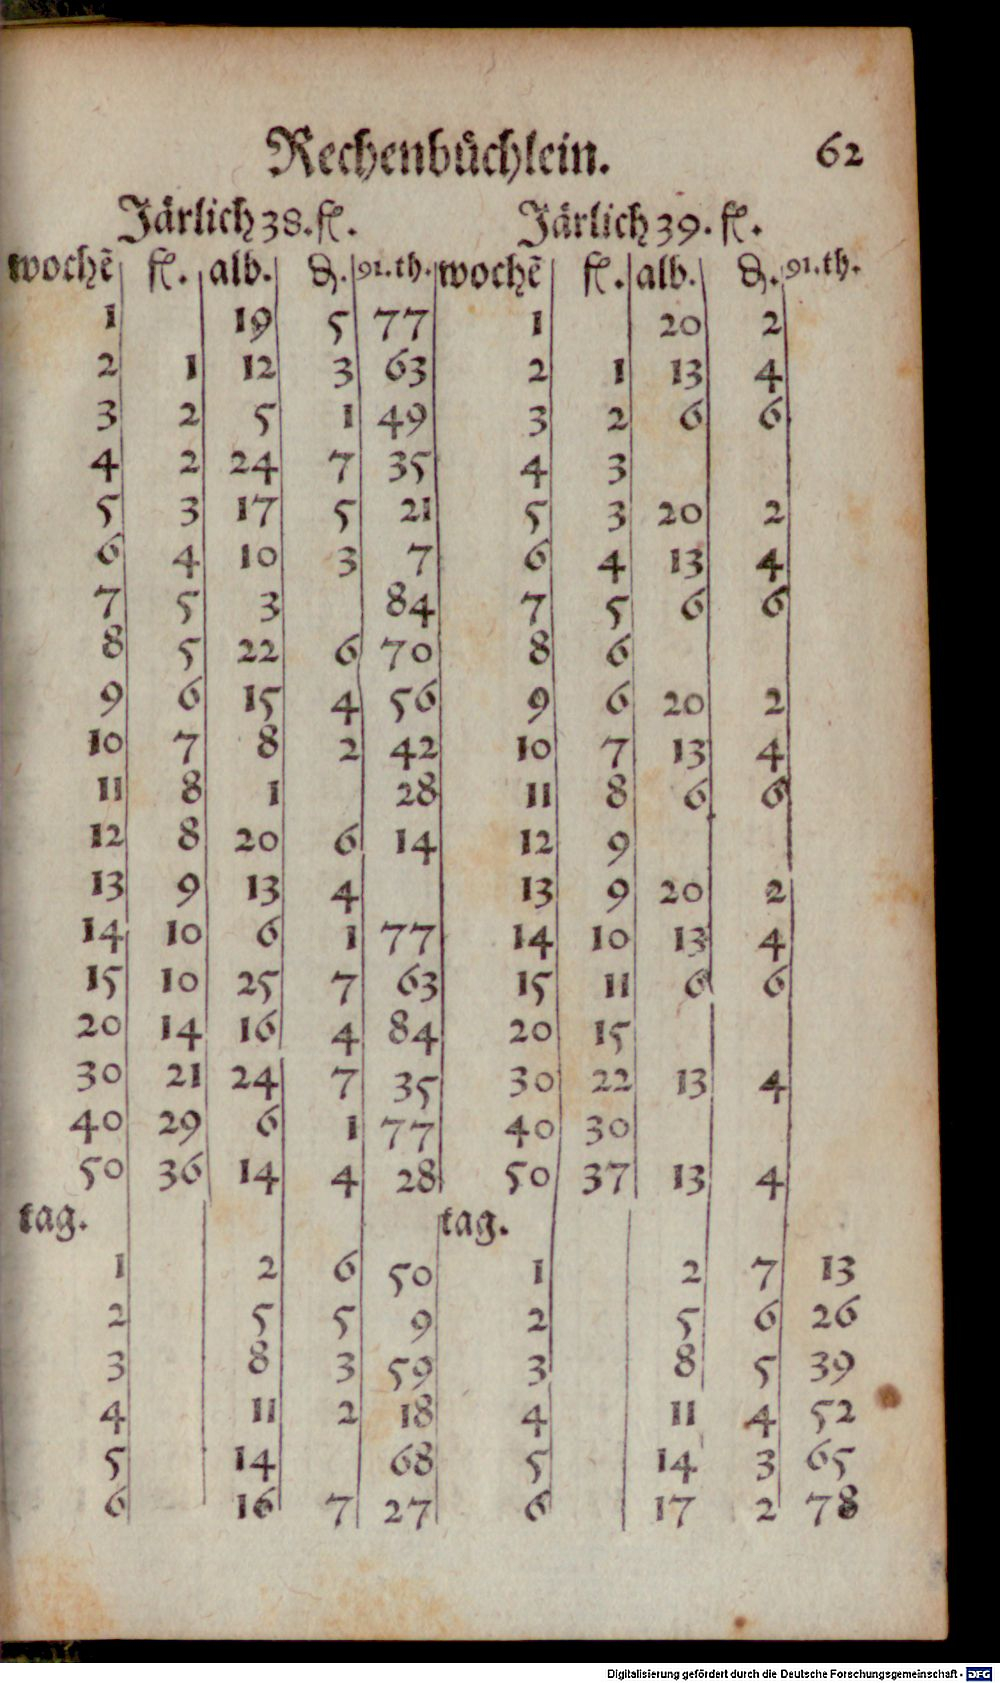 Rechenbüchlein. 62
Järlich 38. fl. Järlich 39. fl.
wochẽ fl. alb. ₰. 91.th. wochẽ fl. alb. ₰. 91.th.
1 19 5 77 1 20 2
2 1 12 3 63 2 1 13 4
3 2 5 1 49 3 2 6 6
4 2 24 7 35 4 3
5 3 17 5 21 5 3 20 2
6 4 10 3 7 6 4 13 4
7 5 3 84 7 5 6 6
8 5 22 6 70 8 6
9 6 15 4 56 9 6 20 2
10 7 8 2 42 10 7 13 4
11 8 1 28 11 8 6 6
12 8 20 6 14 12 9
13 9 13 4 13 9 20 2
14 10 6 1 77 14 10 13 4
15 10 25 7 63 15 11 6 6
20 14 16 4 84 20 15
30 21 24 7 35 30 22 13 4
40 29 6 1 77 40 30
50 36 14 4 28 50 37 13 4
tag. tag.
1 2 6 50 1 2 7 13
2 5 5 9 2 5 6 26
3 8 3 59 3 8 5 39
4 11 2 18 4 11 4 52
5 14 68 5 14 3 65
6 16 7 27 6 17 2 78
Digitalisierung gefördert durch die Deutsche Forschungsgemeinschaft - DFG